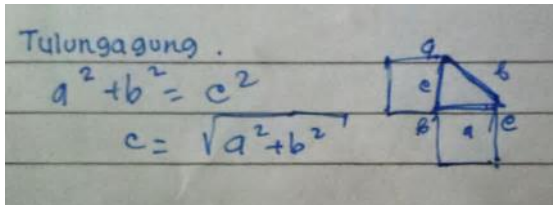 Tulungagung.
a² + b² = c²
c = √a² + b²
a
c b
B a c